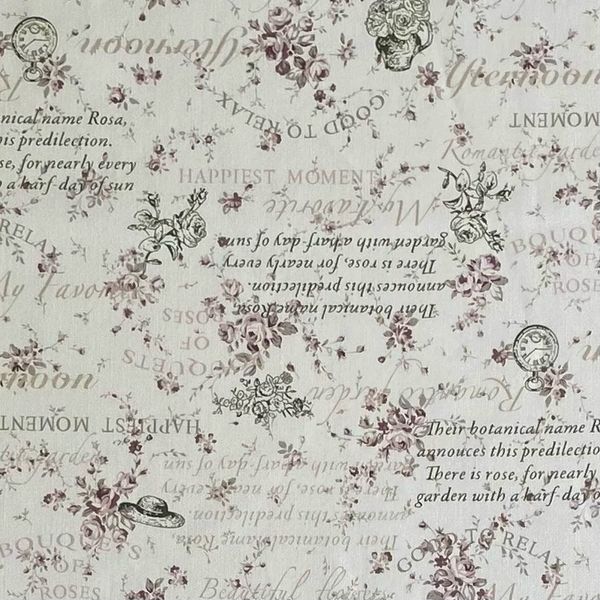 Afternoon
Afternoon
GOOD TO RELAX
MOMENT
anical name Rosa,
his predilection.
se, for nearly every
a harf-day of sun
Romantic garden
HAPPIEST MOMENT
My Favorite
RELAX
BOUQUETS
OF
ROSES
My Favorite
Their botanical name Rosa,
annouces this predilection.
There is rose, for nearly every
garden with a harf-day of sun
BOUQUETS
OF
ROSES
noon
Romantic garden
HAPPIEST MOMENT
garden
Their botanical name R
annouces this predilectio
There is rose, for nearly
garden with a harf-day o
Their botanical name Rosa,
annouces this predilection.
There is rose, for nearly every
garden with a harf-day of sun
BOUQUETS
OF
ROSES
GOOD TO RELAX
Beautiful flower
My Fa